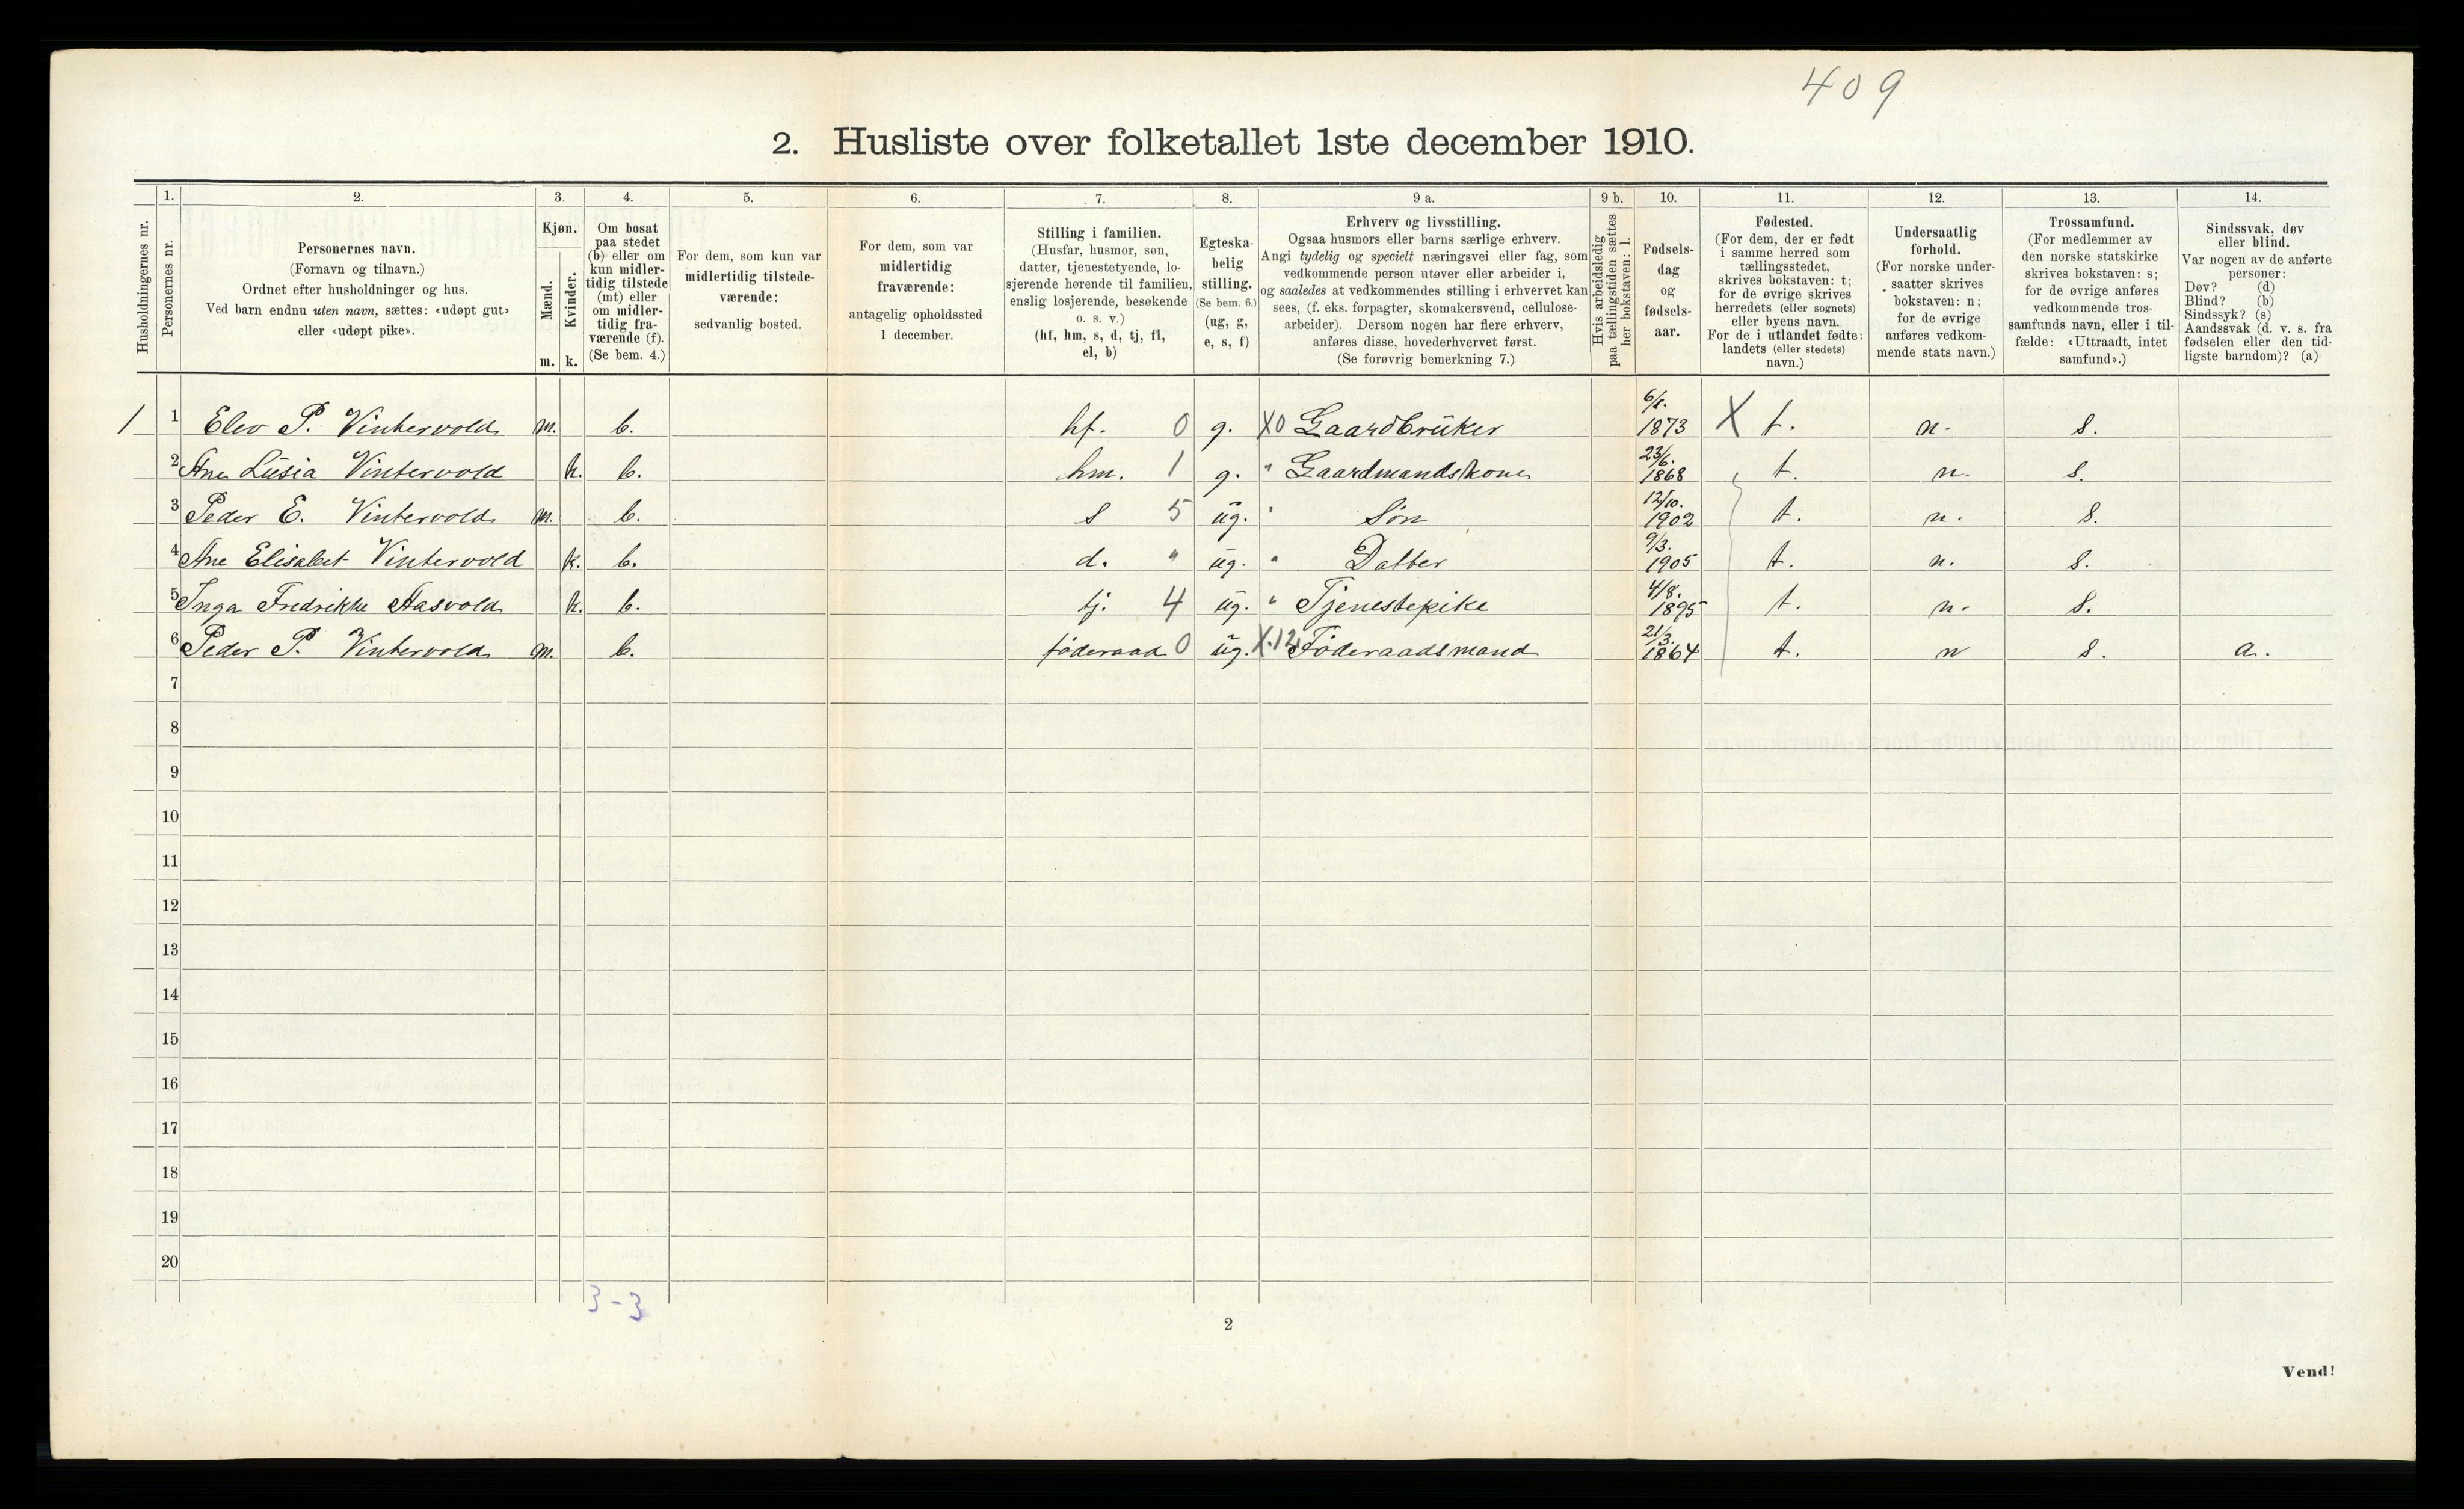 409
2. Husliste over folketallet 1ste december 1910.
Husholdningernes nr.
1.
Personernes nr.
2.
Personernes navn.
(Fornavn og tilnavn.)
Ordnet efter husholdninger og hus.
Ved barn endnu uten navn, sættes: «udøpt gut»
eller «udøpt pike».
3.
Kjøn.
Mænd.
Kvinder.
m. k.
4.
Om bosat
paa stedet
(b) eller om
kun midler-
tidig tilstede
(mt) eller
om midler-
tidig fra-
værende (f).
(Se bem. 4.)
5.
For dem, som kun var
midlertidig tilstede-
værende:
sedvanlig bosted.
6.
For dem, som var
midlertidig
fraværende:
antagelig opholdssted
1 december.
7.
Stilling i familien.
(Husfar, husmor, søn,
datter, tjenestetyende, lo-
sjerende hørende til familien,
enslig losjerende, besøkende
o. s. v.)
(hf, hm, s, d, tj, fl,
el, b)
8.
Egteska-
belig
stilling.
(Se bem. 6.)
(ug, g,
e, s, f)
9 a.
Erhverv og livsstilling.
Ogsaa husmors eller barns særlige erhverv.
Angi tydelig og specielt næringsvei eller fag, som
vedkommende person utøver eller arbeider i,
og saaledes at vedkommendes stilling i erhvervet kan
sees, (f. eks. forpagter, skomakersvend, cellulose-
arbeider). Dersom nogen har flere erhverv,
anføres disse, hovederhvervet først.
(Se forøvrig bemerkning 7.)
9 b.
Hvis arbeidsledig
paa tællingstiden sættes
her bokstaven: l.
10.
Fødsels-
dag
og
fødsels-
aar.
11.
Fødested.
(For dem, der er født
i samme herred som
tællingsstedet,
skrives bokstaven: t;
for de øvrige skrives
herredets (eller sognets)
eller byens navn.
For de i utlandet fødte:
landets (eller stedets)
navn.)
12.
Undersaatlig
forhold.
(For norske under-
saatter skrives
bokstaven: n;
for de øvrige
anføres vedkom-
mende stats navn.)
13.
Trossamfund.
(For medlemmer av
den norske statskirke
skrives bokstaven: s;
for de øvrige anføres
vedkommende tros-
samfunds navn, eller i til-
fælde: «Uttraadt, intet
samfund».)
14.
Sindssvak, døv
eller blind.
Var nogen av de anførte
personer:
Døv? (d)
Blind? (b)
Sindssyk? (s)
Aandssvak (d. v. s. fra
fødselen eller den tid-
ligste barndom)? (a)
1 1 Elev P. Vintervold m. b. hf. 0 g. X0 Gaardbrüker 6/1. 1873 X t. n. s.
2 Ane Lüsia Vintervold k. b. hm. 1 g. " Gaardmandskone 23/6. 1868 t. n. s.
3 Peder E. Vintervold m. b. s 5 üg. " Søn 12/10. 1902 t. n. s.
4 Ane Elisabet Vintervold k. b. d. " üg. " Datter 9/3. 1905 t. n. s.
5 Inga Fredrikke Aasvold k. b. tj. 4 üg. " Tjenestepike 4/8. 1895 t. n. s.
6 Peder P. Vintervold m. b. føderaad 0 üg. X.12 Føderaadsmand 21/3. 1864 t. n s. a.
7
8
9
10
11
12
13
14
15
16
17
18
19
20
3-3
2
Vend!